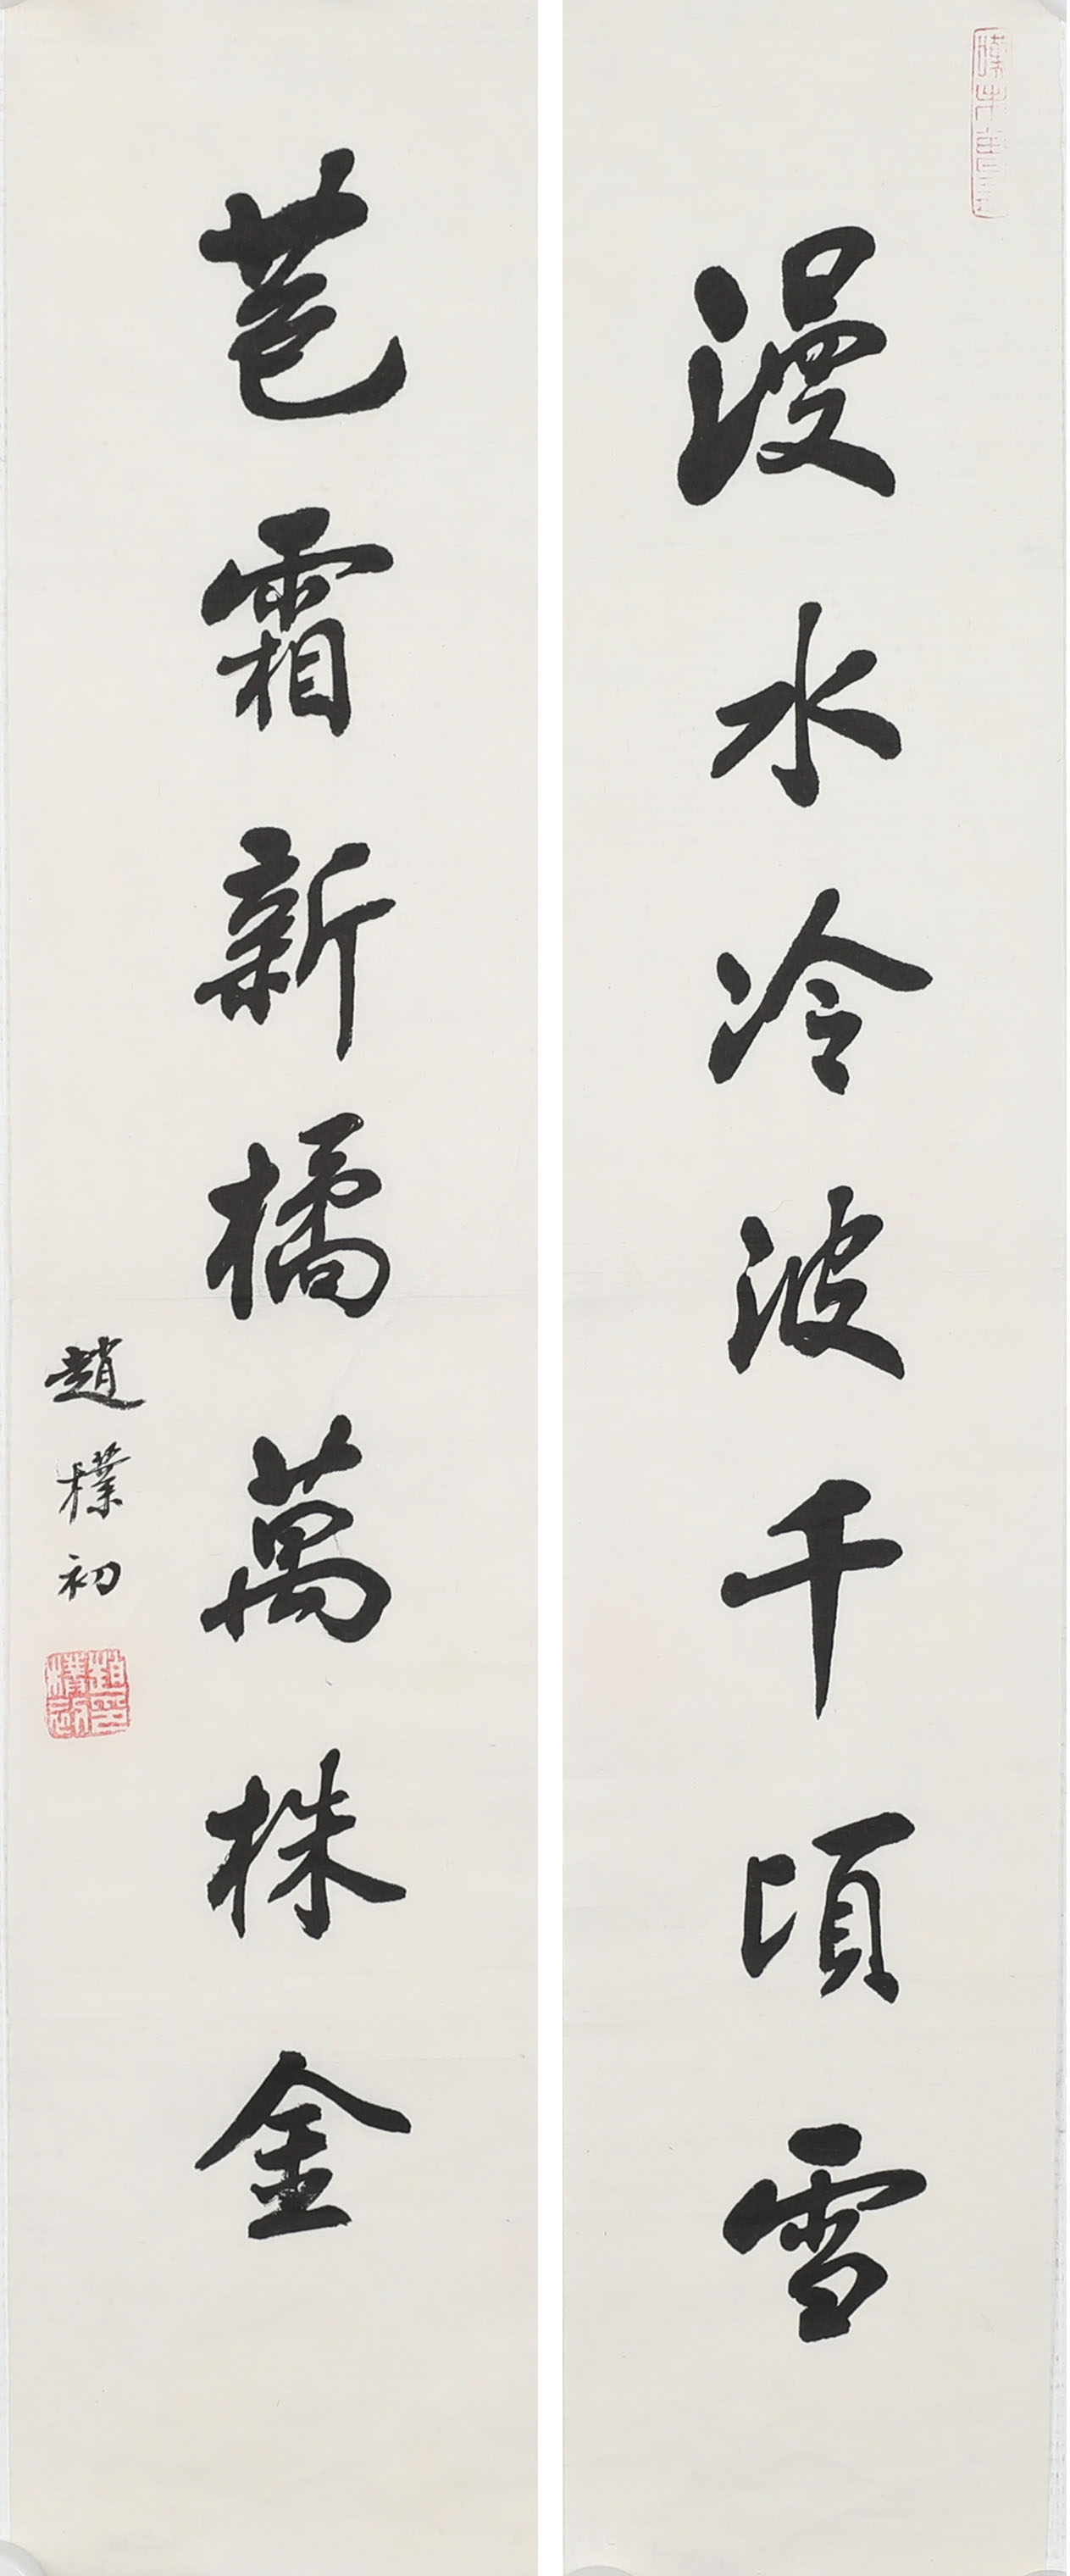 漫水冷波千頃雪
苞霜新橘萬株金
趙樸初
趙樸初印